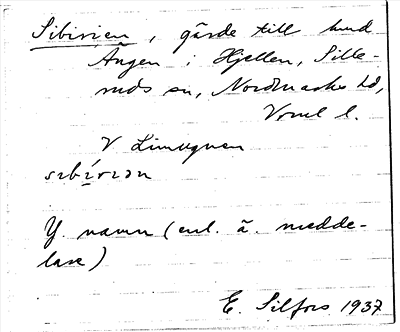 Sibirien, gärde till hmd
Ängen i Hjellen, Sille-
ruds sn, Nordmarks hd,
Vrml l.
V
sɩbí́rɩən
Y namn (enl. ä. medde-
lare)
E. Silfors 1937